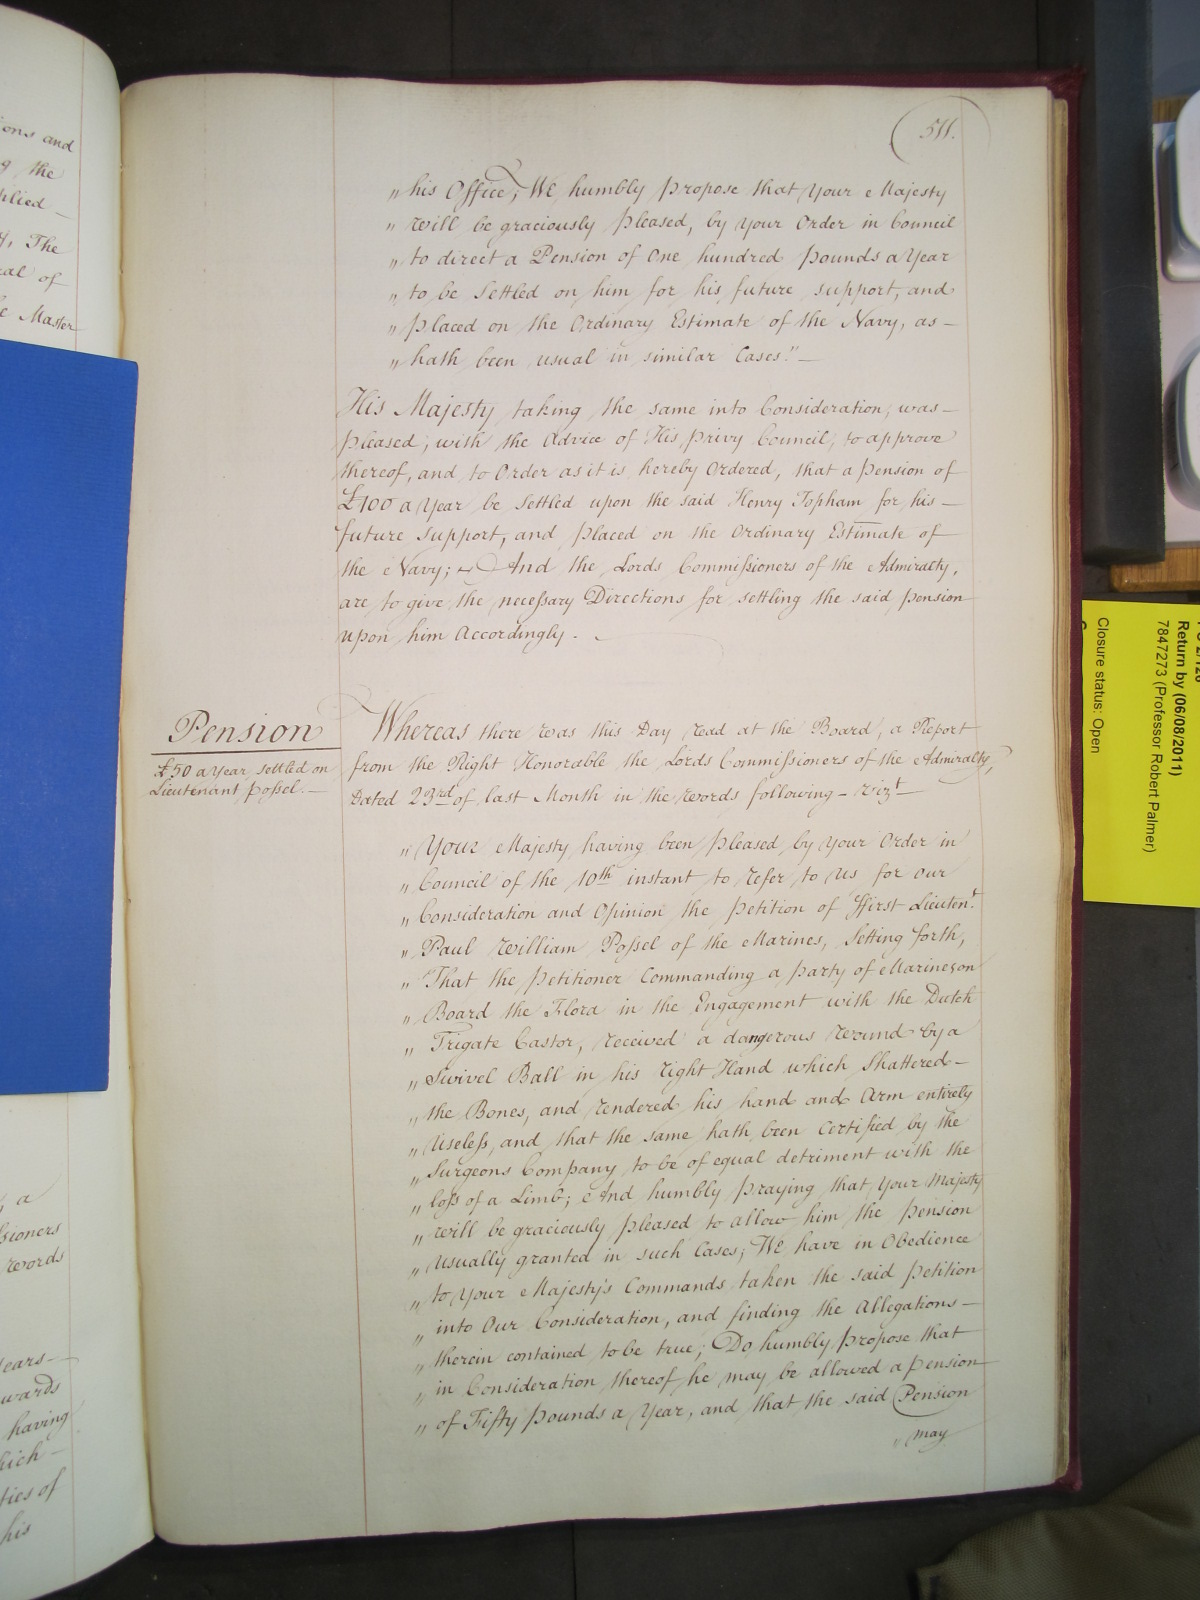 ons and
g the
plied —
The
al of
e Master
511.
„ his Office; We humbly propose that Your Majesty
„ will be graciously pleased, by Your Order in Council
„ to direct a Pension of One hundred pounds a Year
„ to be settled on him for his future support, and
„ placed on the Ordinary Estimate of the Navy, as —
„ hath been usual in similar Cases." —
His Majesty taking the same into Consideration, was —
pleased, with the Advice of His privy Council, to approve
thereof, and to Order as it is hereby Ordered, that a pension of
£100 a Year be settled upon the said Henry Topham for his —
future support, and placed on the Ordinary Estimate of
the Navy; — And the Lords Commiſsioners of the Admiralty,
are to give the neceſsary Directions for settling the said pension
upon him Accordingly. —
Pension
£50 a Year, settled on
Lieutenant Poſsel. —
Whereas there was this Day read at the Board, a Report
from the Right Honorable the Lords Commiſsioners of the Admiralty,
Dated 23rd of last Month in the words following — vizt
„ Your Majesty having been pleased by Your Order in
„ Council of the 10th instant to refer to Us for our
„ Consideration and Opinion the petition of ffirst Lieutent
„ Paul William Poſsel of the Marines, setting forth,
„ That the petitioner Commanding a party of Marines on
„ Board the Flora in the Engagement with the Dutch
„ Frigate Castor, received a dangerous wound by a
„ Swivel Ball in his right Hand which shattered —
„ the Bones, and rendered his hand and Arm entirely
„ useleſs, and that the same hath been certified by the
„ Surgeons Company to be of equal detriment with the
„ loſs of a Limb; And humbly praying that Your Majesty
„ will be graciously pleased to allow him the pension
„ usually granted in such Cases; We have in Obedience
„ to Your Majesty's Commands taken the said petition
„ into Our Consideration, and finding the Allegations —
„ therein contained to be true; Do humbly propose that
„ in Consideration thereof he may be allowed a pension
„ of Fifty pounds a Year, and that the said Pension
„ may
a
ſsioners
words
ears —
wards
having
hich —
ties of
his
Return by (06/08/2011)
7847273 (Professor Robert Palmer)
Closure status: Open